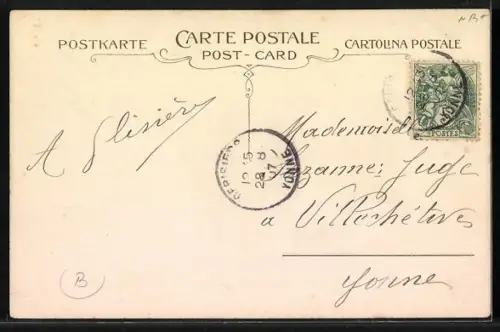 CARTE POSTALE
POSTKARTE
POST-CARD
CARTOLINA POSTALE
A
Mademoiselle
Suzanne Juge
a Villechétive
Yonne
CERISIERS
12 15
28 8
07
YONNE
YONNE
POSTES
B